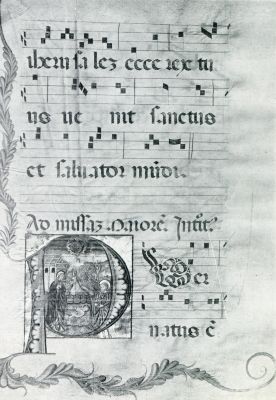 iherusalez ecce rex tu
us ue nit sanctus
et saluator mũdi.
Ad missaz maiorē. Intit.
P Uer
natus ē